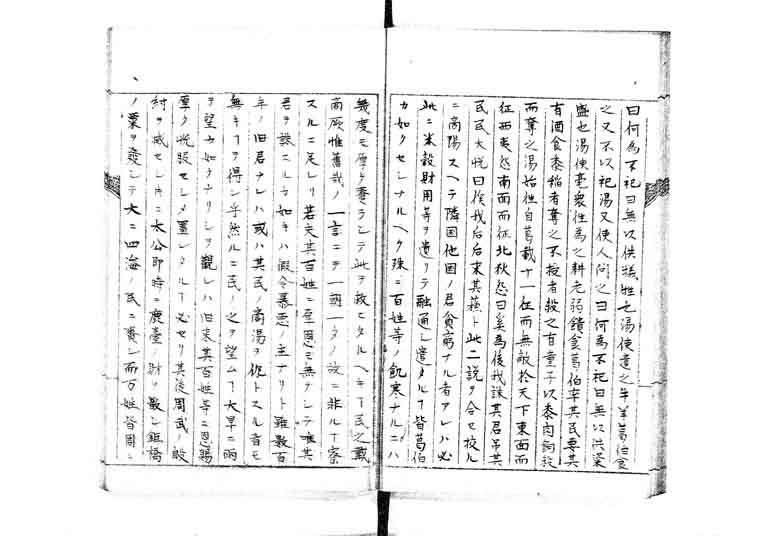 曰何為不祀曰無以供犠牲也湯使遺之牛羊葛伯食
之又不以祀湯又使人問之曰何為不祀曰無以供粢
盛也湯使亳衆往為之耕老弱饋食葛伯率其民要其
有酒食黍稲者奪之不授者殺之有童子以黍肉餉殺
而奪之湯始征自葛載十一征而無敵於天下東面而
征西夷怨南面而征北狄怨曰奚為後我誅其君吊其
民民大悦曰徯我后后来其蘇ト此二説ヲ合セ校ル
ニ商湯スヘテ隣国他国ノ君貪窮ナル者アレハ必
此ニ米穀財用等ヲ遺リテ融通シ遣タルヿ皆葛伯
カ如クセシナルヘク殊ニ百姓等ノ飢寒ナルニハ
幾度モ厚ク賚ランテ此ヲ救ヒタルヘキヿ民之戴
商厥惟舊哉ノ一言ニテ一朝一夕ノ故ニ非ルヿ察
スルニ足レリ若夫其百姓ニ至恩ミ無クシテ唯其
君ヲ誅スルカ如キハ假令暴悪ノ主ナリト雖数百
年ノ旧君ナレハ或ハ其民ノ商湯ヲ仇トスル者モ
無キヿヲ得ン乎然ルニ民ノ之ヲ望ムヿ大旱ニ雨
ヲ望カ如クナリシヲ觀レハ旧来其百姓等ニ恩賜
厚ク悦服セシメ置シタルヿ必セリ其後周武ノ殷
紂ヲ滅セシ片ニ太公即時ニ鹿臺ノ財ヲ散シ鉅橋
ノ粟ヲ發シテ大ニ四海ノ民ニ賚シ而万姓皆周ニ